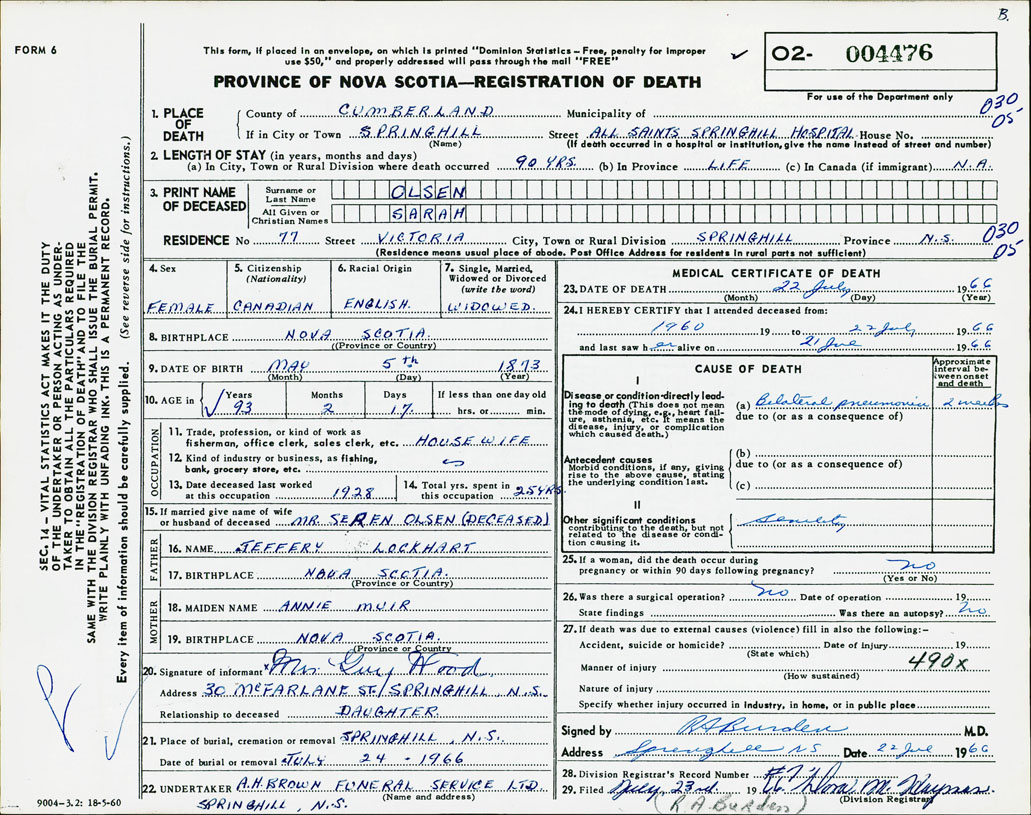 B.
FORM 6
This form, if placed in an envelope, on which is printed "Dominion Statistics – Free, penalty for improper
use $50," and properly addressed will pass through the mail "FREE"
✓
O2- 004476
PROVINCE OF NOVA SCOTIA—REGISTRATION OF DEATH
For use of the Department only
030
05
1. PLACE OF DEATH
County of CUMBERLAND Municipality of
If in City or Town SPRINGHILL Street ALL SAINTS SPRINGHILL HOSPITAL House No.
(Name) (If death occurred in a hospital or institution, give the name instead of street and number)
2. LENGTH OF STAY (in years, months and days)
(a) In City, Town or Rural Division where death occurred 90 YRS. (b) In Province LIFE (c) In Canada (if immigrant) N.A.
3. PRINT NAME OF DECEASED
Surname or Last Name OLSEN
All Given or Christian Names SARAH
RESIDENCE No 77 Street VICTORIA City, Town or Rural Division SPRINGHILL Province N.S.
030
05
(Residence means usual place of abode. Post Office Address for residents in rural parts not sufficient)
4. Sex FEMALE
5. Citizenship (Nationality) CANADIAN
6. Racial Origin ENGLISH.
7. Single, Married, Widowed or Divorced (write the word) WIDOWED.
8. BIRTHPLACE NOVA SCOTIA.
(Province or Country)
9. DATE OF BIRTH MAY 5th 1873
(Month) (Day) (Year)
10. AGE in Years 93 Months 2 Days 17. If less than one day old hrs. or min.
OCCUPATION
11. Trade, profession, or kind of work as
fisherman, office clerk, sales clerk, etc. HOUSEWIFE
12. Kind of industry or business, as fishing,
bank, grocery store, etc.
13. Date deceased last worked
at this occupation 1928
14. Total yrs. spent in
this occupation 25 YRS.
15. If married give name of wife
or husband of deceased MR. SEREN OLSEN (DECEASED)
FATHER
16. NAME JEFFERY LOCKHART
17. BIRTHPLACE NOVA SCOTIA.
(Province or Country)
MOTHER
18. MAIDEN NAME ANNIE MUIR
19. BIRTHPLACE NOVA SCOTIA.
(Province or Country)
20. Signature of informant x Mrs Guy Wood
Address 30 MCFARLANE ST/SPRINGHILL, N.S.
Relationship to deceased DAUGHTER.
21. Place of burial, cremation or removal SPRINGHILL, N.S.
Date of burial or removal JULY 24 - 1966
22. UNDERTAKER A.H. BROWN FUNERAL SERVICE LTD.
(Name and address)
SPRINGHILL, N.S.
9004-3.2: 18-5-60
MEDICAL CERTIFICATE OF DEATH
23. DATE OF DEATH 22 July 1966
(Month) (Day) (Year)
24. I HEREBY CERTIFY that I attended deceased from:
1960 19 to 22 July 1966
and last saw her alive on 21 Jul 1966
CAUSE OF DEATH
Approximate interval between onset and death
I
Disease or condition directly leading to death (This does not mean the mode of dying, e.g., heart failure, asthenia, etc. It means the disease, injury, or complication which caused death.)
(a) Bilateral pneumonia 2 weeks
due to (or as a consequence of)
Antecedent causes
Morbid conditions, if any, giving rise to the above cause, stating the underlying condition last.
(b)
due to (or as a consequence of)
(c)
II
Other significant conditions
contributing to the death, but not related to the disease or condition causing it.
Senility
25. If a woman, did the death occur during
pregnancy or within 90 days following pregnancy? no
(Yes or No)
26. Was there a surgical operation? no Date of operation 19
State findings Was there an autopsy? no
27. If death was due to external causes (violence) fill in also the following:–
Accident, suicide or homicide? Date of injury 19
(State which)
490x
Manner of injury
(How sustained)
Nature of injury
Specify whether injury occurred in industry, in home, or in public place
Signed by RA Burden M.D.
Address Springhill NS Date 22 Jul 1966
28. Division Registrar's Record Number
29. Filed July 23rd 1966
(Division Registrar)
(R A Burden)
SEC. 14 — VITAL STATISTICS ACT MAKES IT THE DUTY
OF THE UNDERTAKER OR PERSON ACTING AS UNDER-
TAKER TO OBTAIN ALL THE PARTICULARS REQUIRED
IN THE "REGISTRATION OF DEATH" AND TO FILE THE
SAME WITH THE DIVISION REGISTRAR WHO SHALL ISSUE THE BURIAL PERMIT.
WRITE PLAINLY WITH UNFADING INK. THIS IS A PERMANENT RECORD.
Every item of information should be carefully supplied. (See reverse side for instructions.)